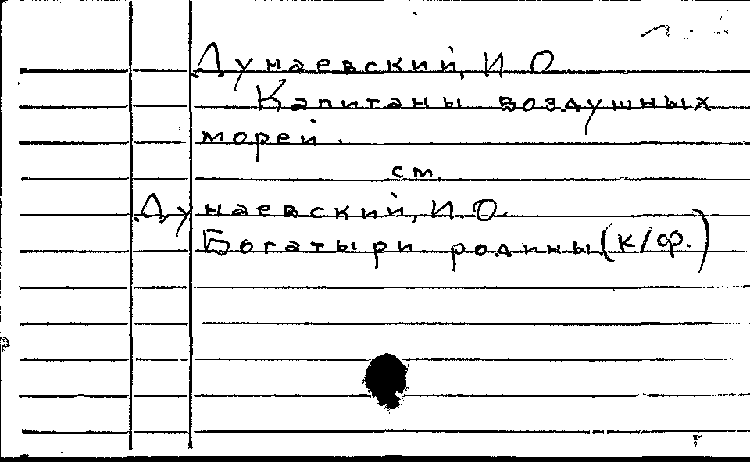 Дунаевский, И О
Капитаны воздушных
морей.
см.
Дунаевский, И. О.
Богатыри родины (к/ф.)